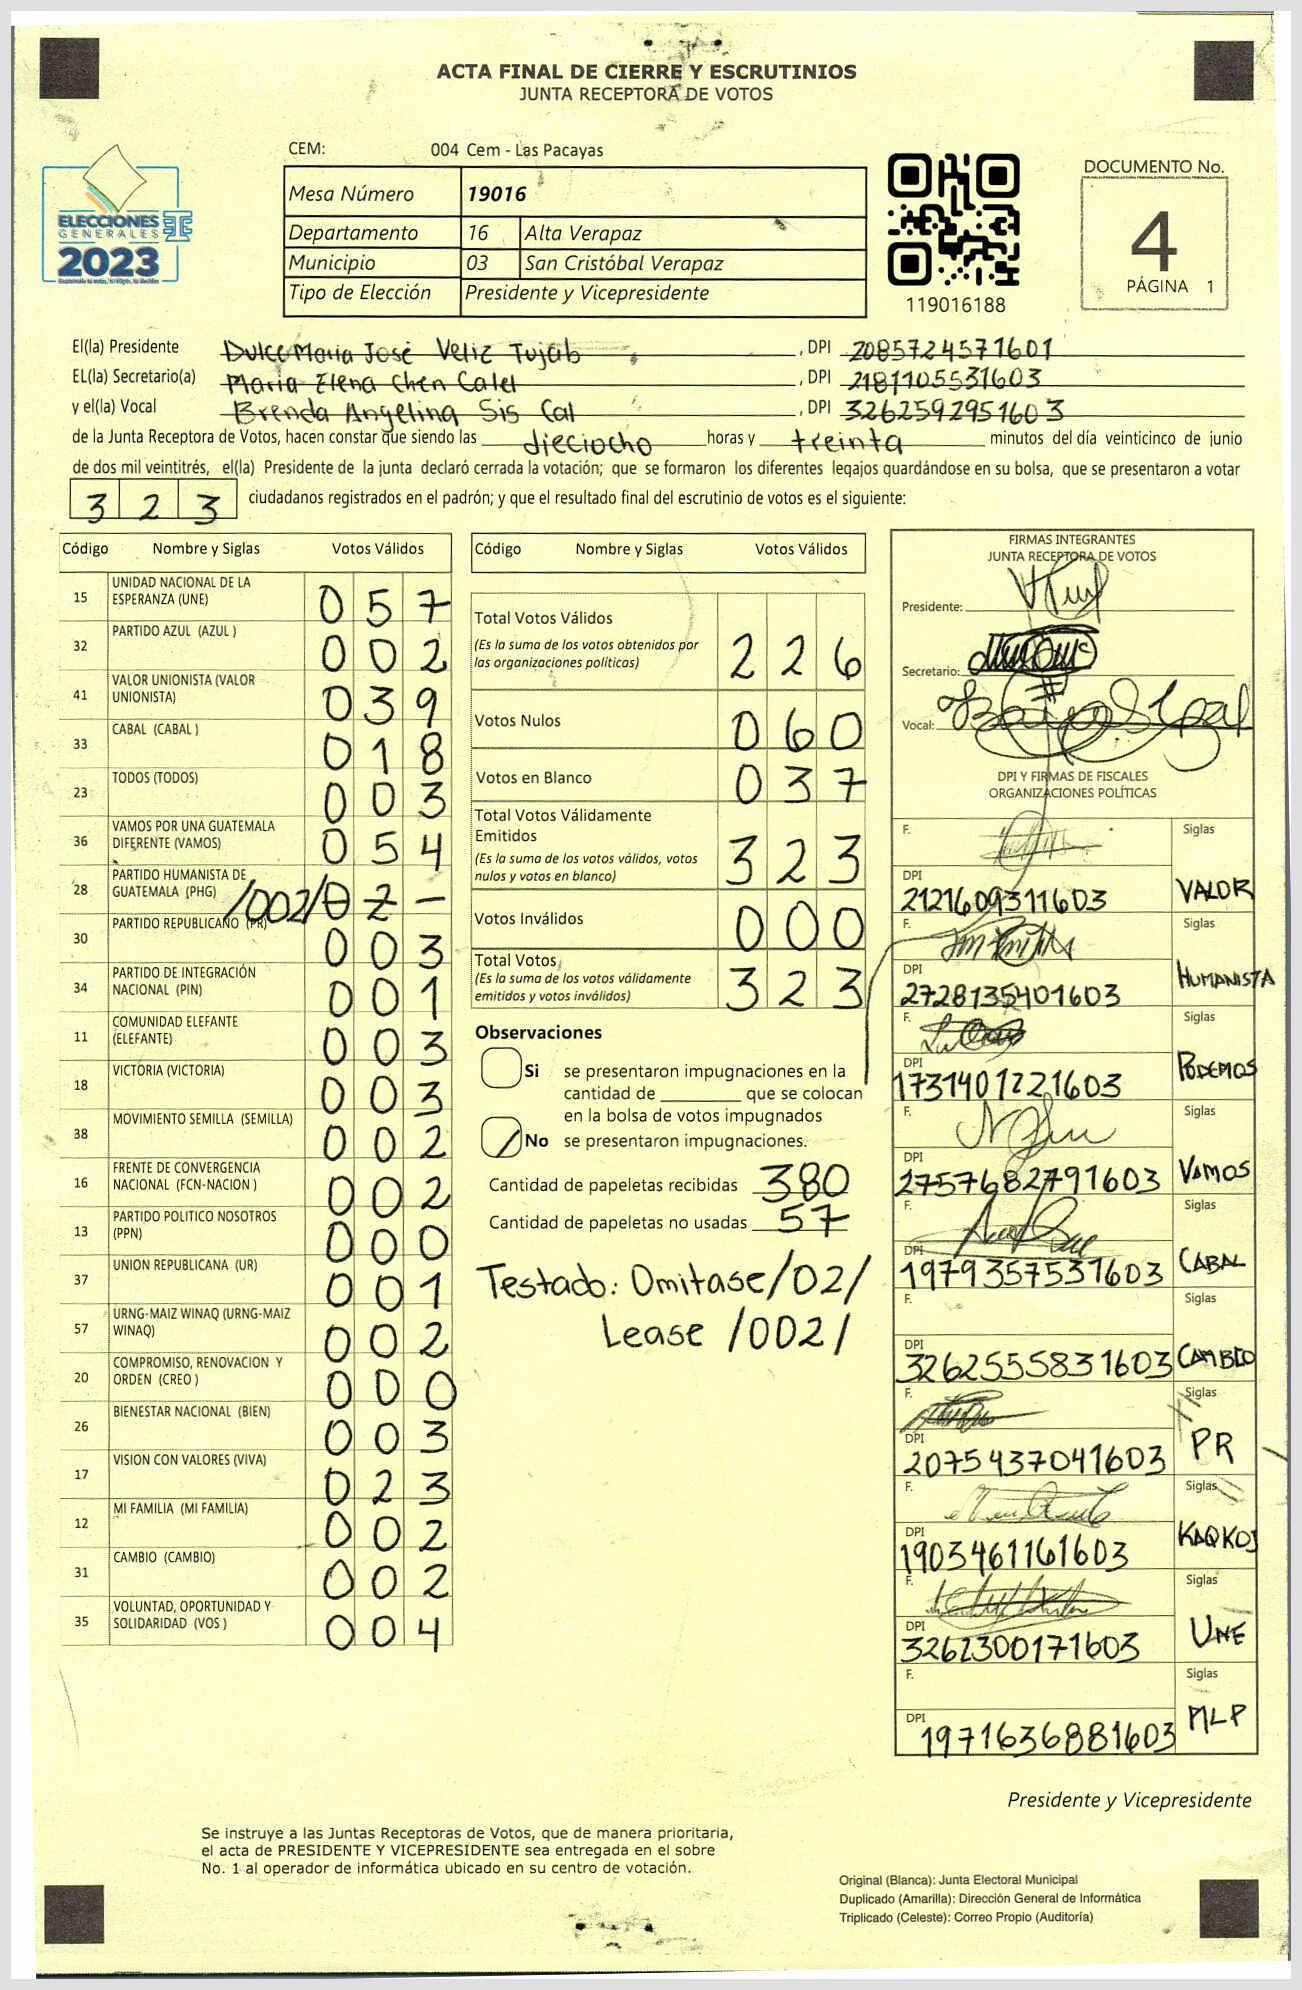 ACTA FINAL DE CIERRE Y ESCRUTINIOS
JUNTA RECEPTORA DE VOTOS
CEM: 004 Cem - Las Pacayas
Mesa Número 19016
Departamento 16 Alta Verapaz
Municipio 03 San Cristóbal Verapaz
Tipo de Elección Presidente y Vicepresidente
ELECCIONES
GENERALES
2023
119016188
DOCUMENTO No.
4
PÁGINA 1
El(la) Presidente Dulce Maria José Veliz Tujab, DPI 2085724571601
EL(la) Secretario(a) Maria Elena Chen Calel, DPI 2181105531603
y el(la) Vocal Brenda Angelina Sis Cal, DPI 3262592951603
de la Junta Receptora de Votos, hacen constar que siendo las dieciocho horas y treinta minutos del día veinticinco de junio
de dos mil veintitrés, el(la) Presidente de la junta declaró cerrada la votación; que se formaron los diferentes legajos guardándose en su bolsa, que se presentaron a votar
323 ciudadanos registrados en el padrón; y que el resultado final del escrutinio de votos es el siguiente:
Código Nombre y Siglas Votos Válidos
15 UNIDAD NACIONAL DE LA ESPERANZA (UNE) 057
32 PARTIDO AZUL (AZUL ) 002
41 VALOR UNIONISTA (VALOR UNIONISTA) 039
33 CABAL (CABAL ) 018
23 TODOS (TODOS) 003
36 VAMOS POR UNA GUATEMALA DIFERENTE (VAMOS) 054
28 PARTIDO HUMANISTA DE GUATEMALA (PHG) /002/ 02-
30 PARTIDO REPUBLICANO (PR) 003
34 PARTIDO DE INTEGRACIÓN NACIONAL (PIN) 001
11 COMUNIDAD ELEFANTE (ELEFANTE) 003
18 VICTORIA (VICTORIA) 003
38 MOVIMIENTO SEMILLA (SEMILLA) 002
16 FRENTE DE CONVERGENCIA NACIONAL (FCN-NACION ) 002
13 PARTIDO POLITICO NOSOTROS (PPN) 000
37 UNION REPUBLICANA (UR) 001
57 URNG-MAIZ WINAQ (URNG-MAIZ WINAQ) 002
20 COMPROMISO, RENOVACION Y ORDEN (CREO ) 000
26 BIENESTAR NACIONAL (BIEN) 003
17 VISION CON VALORES (VIVA) 023
12 MI FAMILIA (MI FAMILIA) 002
31 CAMBIO (CAMBIO) 002
35 VOLUNTAD, OPORTUNIDAD Y SOLIDARIDAD (VOS ) 004
Código Nombre y Siglas Votos Válidos
Total Votos Válidos 226
(Es la suma de los votos obtenidos por
las organizaciones políticas)
Votos Nulos 060
Votos en Blanco 037
Total Votos Válidamente
Emitidos 323
(Es la suma de los votos válidos, votos
nulos y votos en blanco)
Votos Inválidos 000
Total Votos 323
(Es la suma de los votos válidamente
emitidos y votos inválidos)
Observaciones
Si se presentaron impugnaciones en la
cantidad de ________ que se colocan
en la bolsa de votos impugnados
No se presentaron impugnaciones.
Cantidad de papeletas recibidas 380
Cantidad de papeletas no usadas 57
Testado: Omitase/02/
Lease /002/
FIRMAS INTEGRANTES
JUNTA RECEPTORA DE VOTOS
Presidente:
Secretario:
Vocal:
DPI Y FIRMAS DE FISCALES
ORGANIZACIONES POLÍTICAS
F. Siglas
DPI 2121609311603 VALOR
F. Siglas
DPI 2728135401603 HUMANISTA
F. Siglas
DPI 1731401221603 PODEMOS
F. Siglas
DPI 2757682791603 VAMOS
F. Siglas
DPI 1979357531603 CABAL
F. Siglas
DPI 3262555831603 CAMBIO
F. Siglas
DPI 2075437041603 PR
F. Siglas
DPI 1903461161603 KAQKOJ
F. Siglas
DPI 3262300171603 UNE
F. Siglas
DPI 1971636881603 MLP
Presidente y Vicepresidente
Se instruye a las Juntas Receptoras de Votos, que de manera prioritaria,
el acta de PRESIDENTE Y VICEPRESIDENTE sea entregada en el sobre
No. 1 al operador de informática ubicado en su centro de votación.
Original (Blanca): Junta Electoral Municipal
Duplicado (Amarilla): Dirección General de Informática
Triplicado (Celeste): Correo Propio (Auditoría)